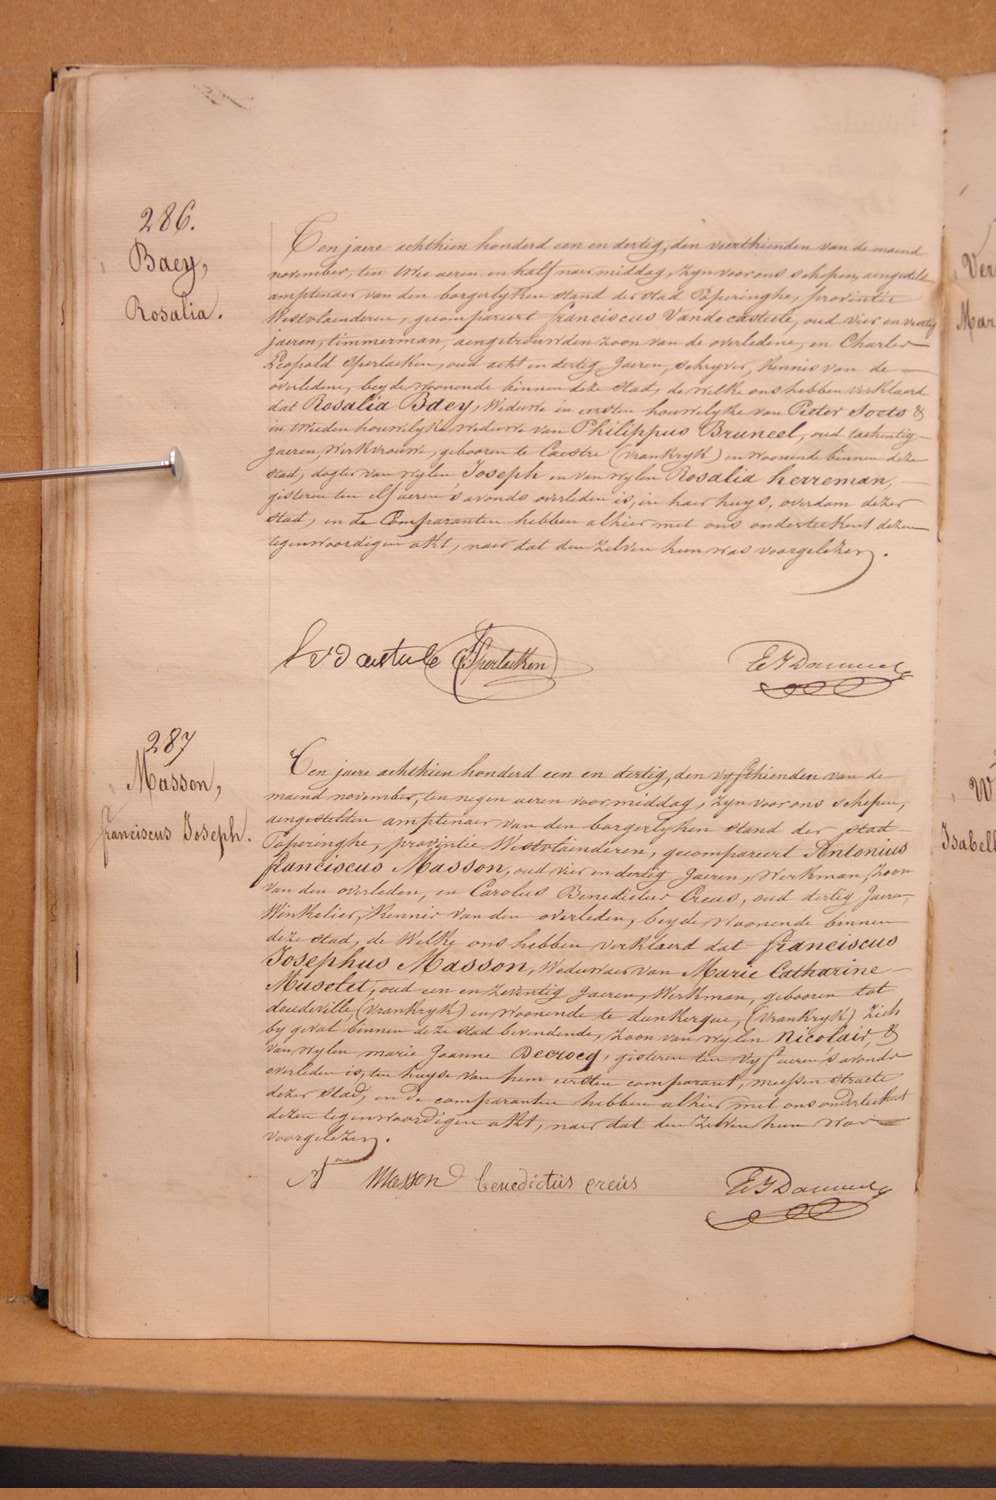 286.
Baey,
Rosalia.
Ten jaere achthien honderd een en dertig, den vierthienden van de maend
november, ten drie ueren en half naer middag, zyn voor ons schepen, aengestelde
amptenaer van den borgerlyken stand der stad Poperinghe, provintie
Westvlaenderen, gecompareert franciscus Vandecasteele, oud vier en veertig
jaeren, timmerman, aengetrouwden zoon van de overledene, en Charles
Leopold Sperlaeken, oud acht en dertig Jaeren, schryver, kennis van de
overledene, beyde woonende binnen deze stad, de welke ons hebben verklaerd
dat Rosalia Baey, Weduwe in eersten houwelyke van Pieter Soots &
in tweeden houwelyke weduwe van Philippus Bruneel, oud tachentig
jaeren, Werkvrouw, gebooren te Caestre (vrankryk) en woonende binnen deze
stad, dogter van wylen Joseph en van wylen Rosalia herreman,
gisteren ten elf ueren 's avonds overleden is, in haer huys, overdam dezer
stad, en de Comparanten hebben alhier met ons onderteekent dezen
tegenwoordigen akt, naer dat den zelven hun was voorgelezen.
Sperlaeken
287
Masson,
franciscus Joseph.
Ten jaere achthien honderd een en dertig, den vyfthienden van de
maend november, ten negen ueren voormiddag, zyn voor ons schepen,
aengestelden amptenaer van den borgerlyken stand der stad
Poperinghe, provintie Westvlaenderen, gecompareert Antonius
franciscus Masson, oud vier en dertig Jaeren, Werkman, zoon
van den overleden, en Carolus Benedictus Creus, oud dertig Jaeren,
Winkelier, Kennis van den overleden, beyde woonende binnen
deze stad, de Welke ons hebben verklaerd dat franciscus
Josephus Masson, Weduwaer van Marie Catharine
Musotet, oud een en zeventig Jaeren, Werkman, gebooren tot
doudeville, (vrankryk) en woonende te dunkerque, (vrankryk) zich
by geval binnen deze stad bevindende, zoon van wylen Nicolais, &
van wylen marie Joanne Decrocq, gisteren ten vyf ueren 's avonds
overleden is, ten huyse van hem eersten comparant, meessen straete
dezer stad, en de comparanten hebben alhier met ons onderteekent
dezen tegenwoordigen akt, naer dat den zelven hun was
voorgelezen.
Masson benedictus creus
Ver
Mar
W
Isabell